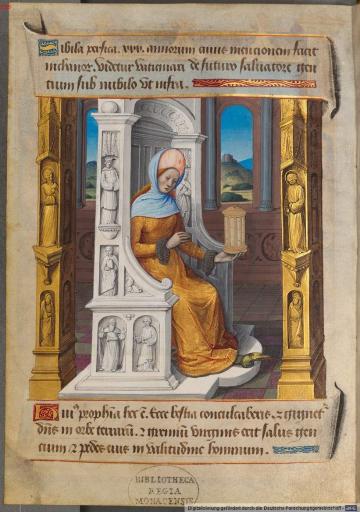 Sibila persica. xxx. annorum cuius mencionem facit
nichanor. Videtur vaticinari de futuro saluatore gen
tium sub nubilo vt infra.
Cui⁹ prophītia hec ē. Ecce bestia conculcaberis. ⁊ gignet
dn̄s in orbe terrarū. ⁊ gremiū virginis erit salus gen
tium. ⁊ pedes eius in valitudine hominum.
BIBLIOTHECA
REGIA
MONACENSIS.
Digitalisierung gefördert durch die Deutsche Forschungsgemeinschaft